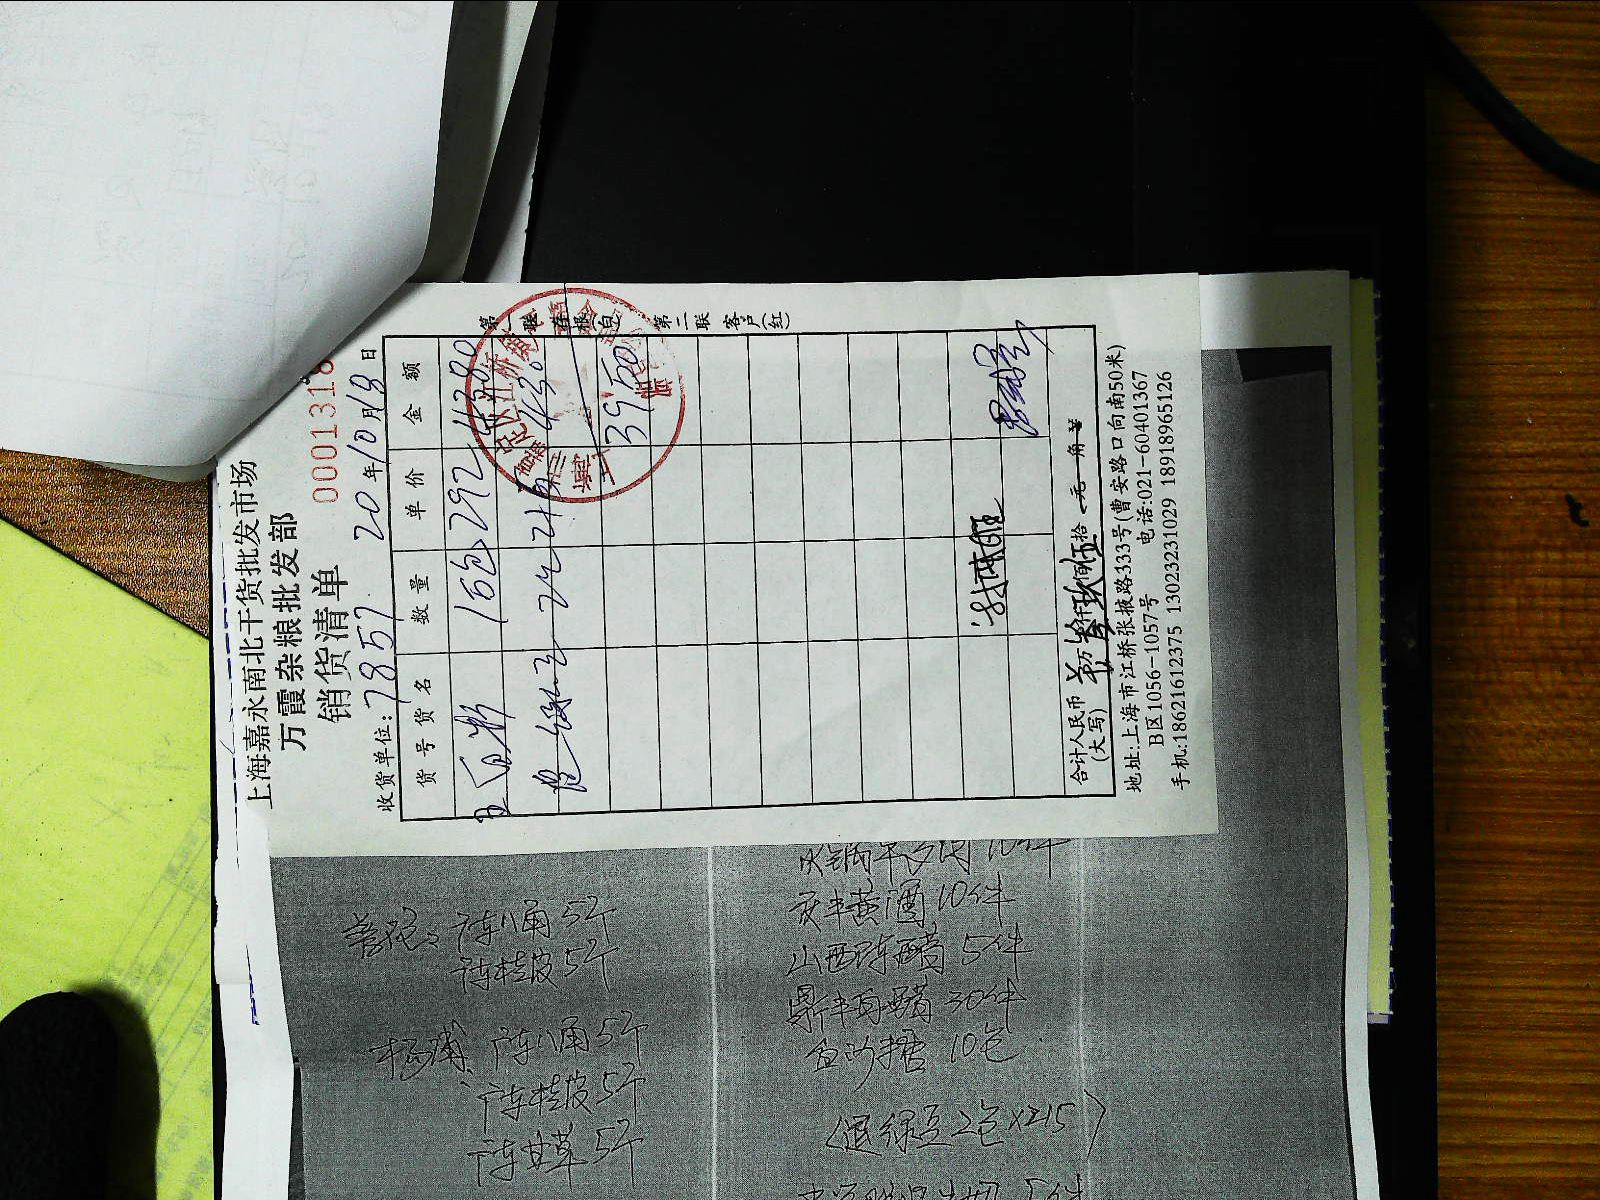 上海嘉永南北干货批发市场
万霞杂粮批发部
销货清单
0001318
收货单位:7857 20年10月19日
货号货名 数量 单价 金额
15包 292 4380
退绿豆 2包 215 430
3950
合计人民币
(大写) 万 叁仟 玖佰 伍拾 元 角
地址:上海市江桥张掖路333号(曹安路口向南50米)
B区1056-1057号 电话:021-60401367
手机:18621612375 13023231029 18918965126
第一联 存根(白) 第二联 客户(红)
普陀: 陈八角5斤
陈桂皮5斤
杨浦: 陈八角5斤
陈桂皮5斤
陈甘草5斤
10件
黄酒10件
山西陈醋 5件
鼎丰白醋 30件
白砂糖 10包
(退绿豆2包×215)